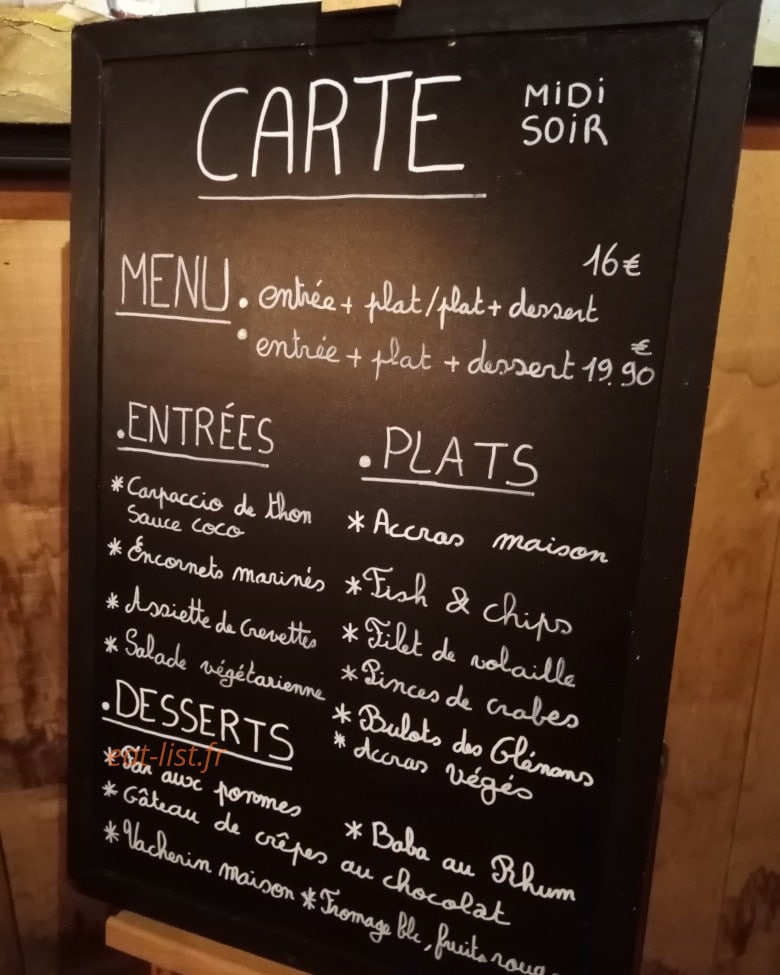 CARTE
MIDI
SOIR
16€
MENU . entrée + plat/plat + dessert
. entrée + plat + dessert 19.90€
. ENTRÉES
* Carpaccio de thon
Sauce coco
* Encornets marinés
* Assiette de Crevettes
* Salade végétarienne
. PLATS
* Accras maison
* Fish & chips
* Filet de volaille
* Pinces de crabes
* Bulots des Glénans
* Accras végés
. DESSERTS
eat-list.fr
* Far aux pommes
* Gâteau de crêpes au chocolat
* Baba au Rhum
* Vacherin maison * Fromage blc, fruits roug